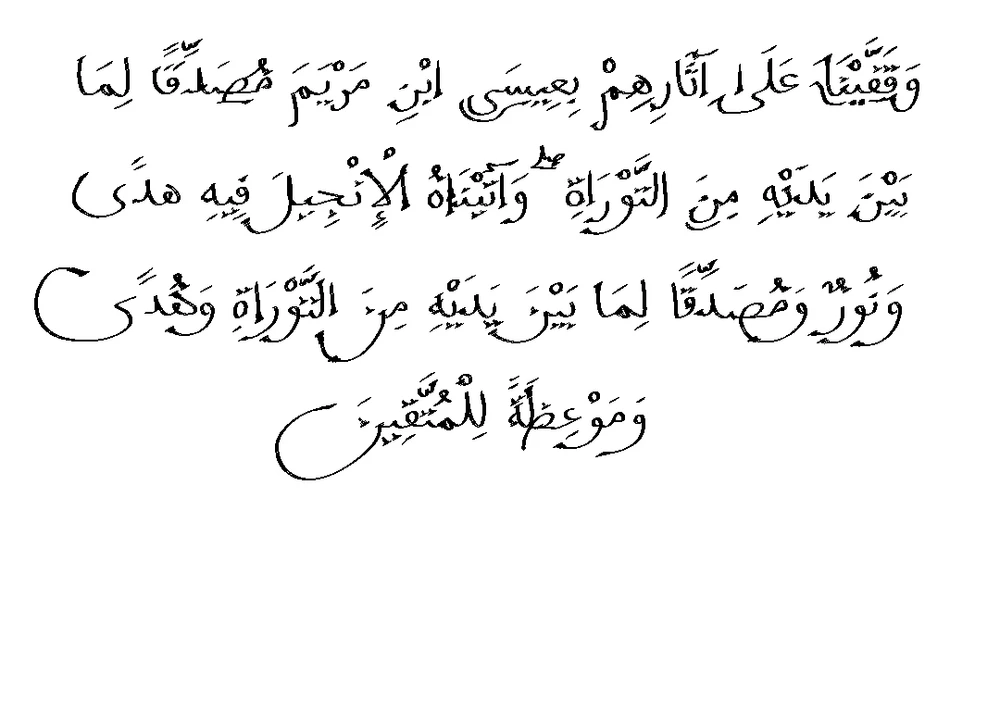 وَقَفَّيْنَا عَلَىٰ آثَارِهِمْ بِعِيسَى ابْنِ مَرْيَمَ مُصَدِّقًا لِمَا
بَيْنَ يَدَيْهِ مِنَ التَّوْرَاةِ ۖ وَآتَيْنَاهُ الْإِنْجِيلَ فِيهِ هدًى
وَنُورٌ وَمُصَدِّقًا لِمَا بَيْنَ يَدَيْهِ مِنَ التَّوْرَاةِ وَهُدًى
وَمَوْعِظَةً لِلْمُتَّقِينَ